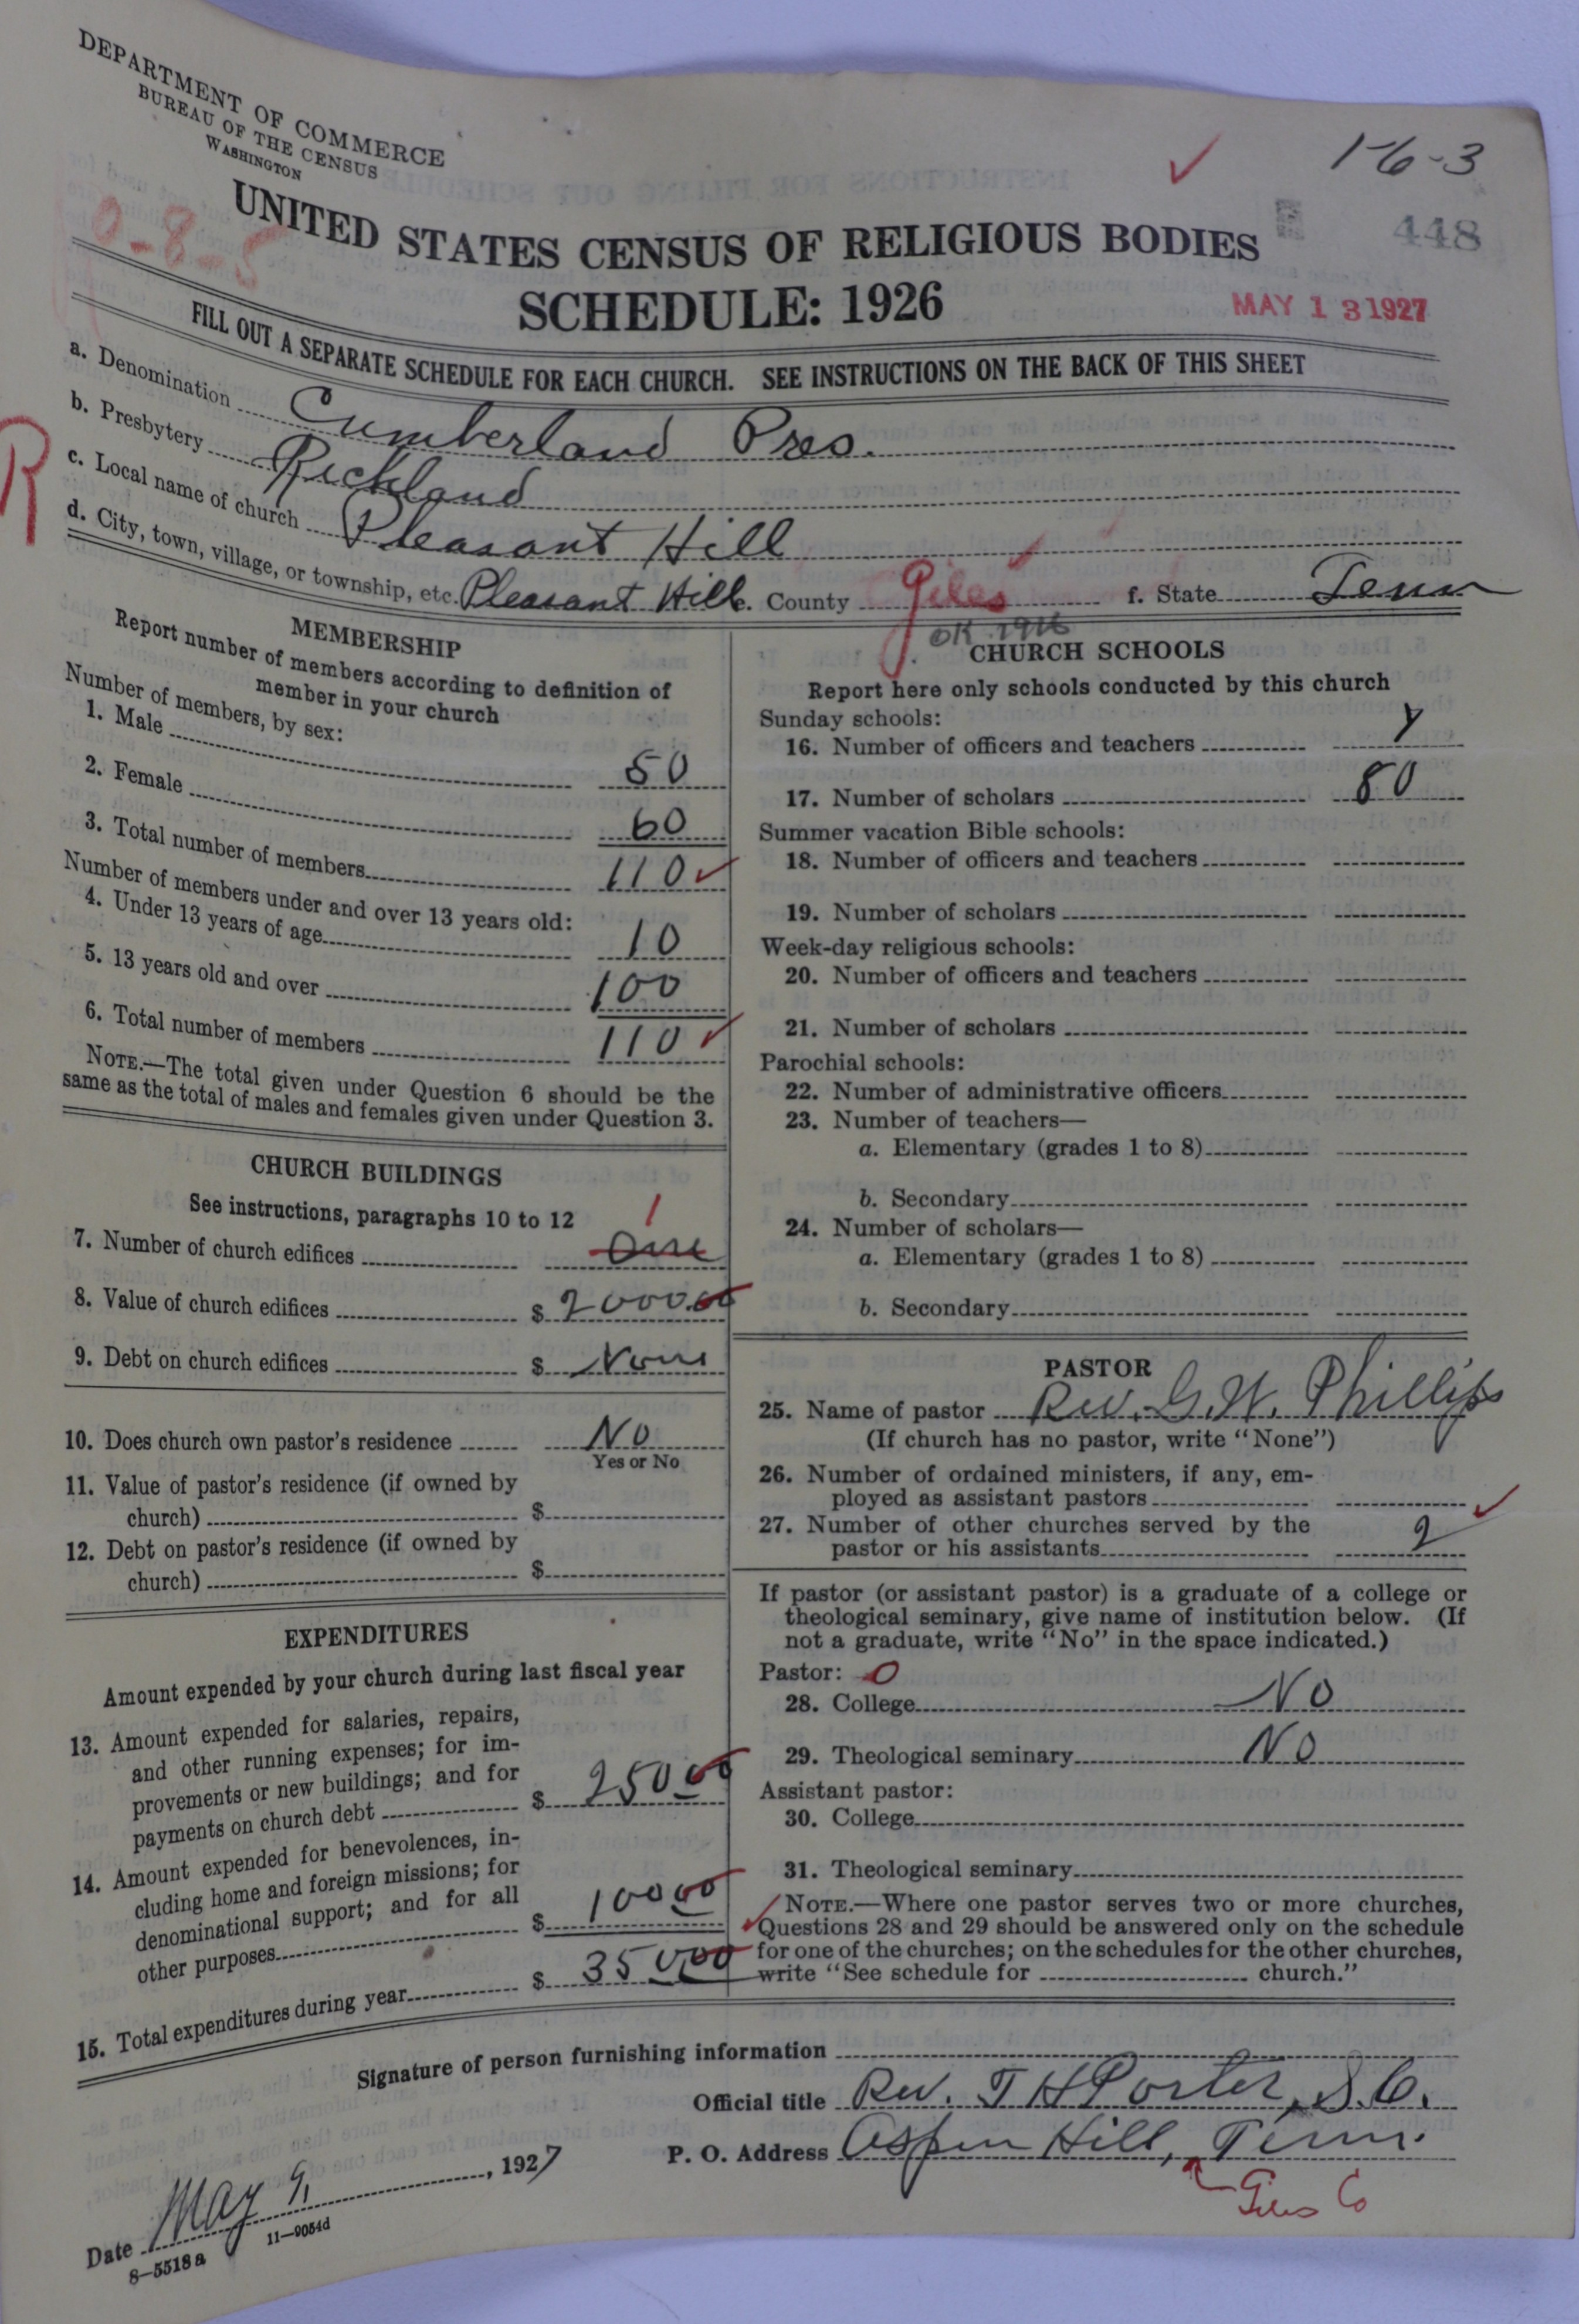 DEPARTMENT OF COMMERCE
BUREAU OF THE CENSUS
WASHINGTON
1-6-3
448
UNITED STATES CENSUS OF RELIGIOUS BODIES
0-8-5
SCHEDULE: 1926
MAY 13 1927
FILL OUT A SEPARATE SCHEDULE FOR EACH CHURCH. SEE INSTRUCTIONS ON THE BACK OF THIS SHEET
a. Denomination Cumberland Pres.
b. Presbytery Richland
R
c. Local name of church Pleasant Hill
d. City, town, village, or township, etc. Pleasant Hill e. County Giles f. State Tenn
OK 1916
MEMBERSHIP
Report number of members according to definition of
member in your church
Number of members, by sex:
1. Male 50
2. Female 60
3. Total number of members 110
Number of members under and over 13 years old:
4. Under 13 years of age 10
5. 13 years old and over 100
6. Total number of members 110
NOTE.—The total given under Question 6 should be the
same as the total of males and females given under Question 3.
CHURCH BUILDINGS
See instructions, paragraphs 10 to 12
1
7. Number of church edifices One
8. Value of church edifices $ 2000.00
9. Debt on church edifices $ None
10. Does church own pastor's residence No
Yes or No
11. Value of pastor's residence (if owned by
church) $
12. Debt on pastor's residence (if owned by
church) $
EXPENDITURES
Amount expended by your church during last fiscal year
13. Amount expended for salaries, repairs,
and other running expenses; for im-
provements or new buildings; and for
payments on church debt $ 250 00
14. Amount expended for benevolences, in-
cluding home and foreign missions; for
denominational support; and for all
other purposes $ 100 00
15. Total expenditures during year $ 350.00
CHURCH SCHOOLS
Report here only schools conducted by this church
Sunday schools:
16. Number of officers and teachers
17. Number of scholars 80
Summer vacation Bible schools:
18. Number of officers and teachers
19. Number of scholars
Week-day religious schools:
20. Number of officers and teachers
21. Number of scholars
Parochial schools:
22. Number of administrative officers
23. Number of teachers—
a. Elementary (grades 1 to 8)
b. Secondary
24. Number of scholars—
a. Elementary (grades 1 to 8)
b. Secondary
PASTOR
25. Name of pastor Rev. G. W. Phillips
(If church has no pastor, write "None")
26. Number of ordained ministers, if any, em-
ployed as assistant pastors
27. Number of other churches served by the
pastor or his assistants 2
If pastor (or assistant pastor) is a graduate of a college or
theological seminary, give name of institution below. (If
not a graduate, write "No" in the space indicated.)
Pastor: 0
28. College No
29. Theological seminary No
Assistant pastor:
30. College
31. Theological seminary
NOTE.—Where one pastor serves two or more churches,
Questions 28 and 29 should be answered only on the schedule
for one of the churches; on the schedules for the other churches,
write "See schedule for church."
Signature of person furnishing information
Official title Rev. T H Porter, S.C.
P. O. Address Aspen Hill, Tenn.
Giles Co
Date May 9, 1927
8—5518 a 11—9054d